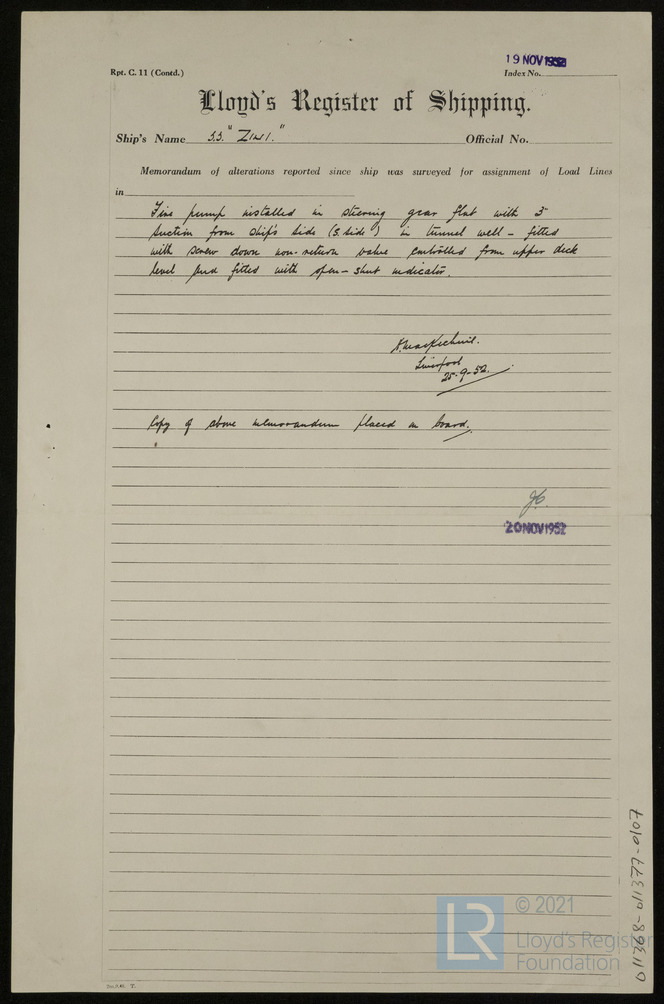 19 NOV 1952
Rpt. C. 11 (Contd.)
Index No.
Lloyd's Register of Shipping.
Ship's Name S.S. "ZIWI."
Official No.
Memorandum of alterations reported since ship was surveyed for assignment of Load Lines
in
Fire pump installed in steering gear flat with 3"
suction from ship's side (S. side) in tunnel well - fitted
with screw down non-return valve controlled from upper deck
level and fitted with open-shut indicator.
Liverpool
25-9-52.
Copy of above memorandum placed on board.
20 NOV 1952
011368-011377-0107
© 2021
LR
Lloyd's Register
Foundation